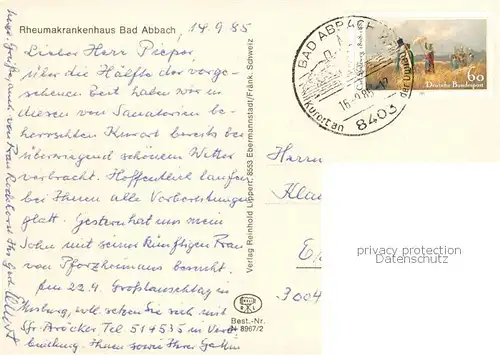 Rheumakrankenhaus Bad Abbach, 14.9.85
Lieber Herr Pieper
über die Hälfte der vorge-
sehenen Zeit haben wir in
diesem von Sanatorien be-
herrschten Kurort bereits bei
überwiegend schönem Wetter
verbracht. Hoffentlich laufen
bei Ihnen alle Vorbereitungen
glatt. Gestern hat uns mein
Sohn mit seiner künftigen Frau
von Pforzheim aus besucht.
Am 22.9. Großtauschtag in
burg, will setzen Sie sich mit
Tel 514535 in Verb
bindung. Ihnen sowie Ihrer Gattin
Verlag Reinhold Lippert, 8553 Ebermannstadt/Fränk. Schweiz
Best.-Nr.
N 8967/2
BAD ABBACH
Kurort an der
8403
60
Deutsche Bundespost
Herrn
Kla
3004
privacy protection
www.ansichtskartenversand.com